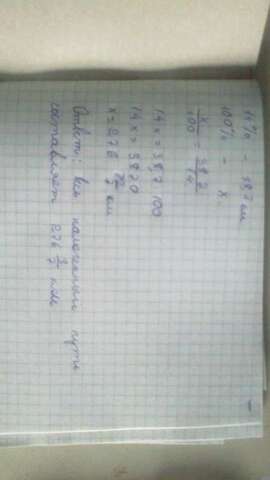 14% - 38,7 км
100% - x
x/100 = 38,7/14
14x = 38,7 · 100
14x = 3870
x = 276 3/7 км
Ответ: вся намеченный пути
составляет 276 3/7 км